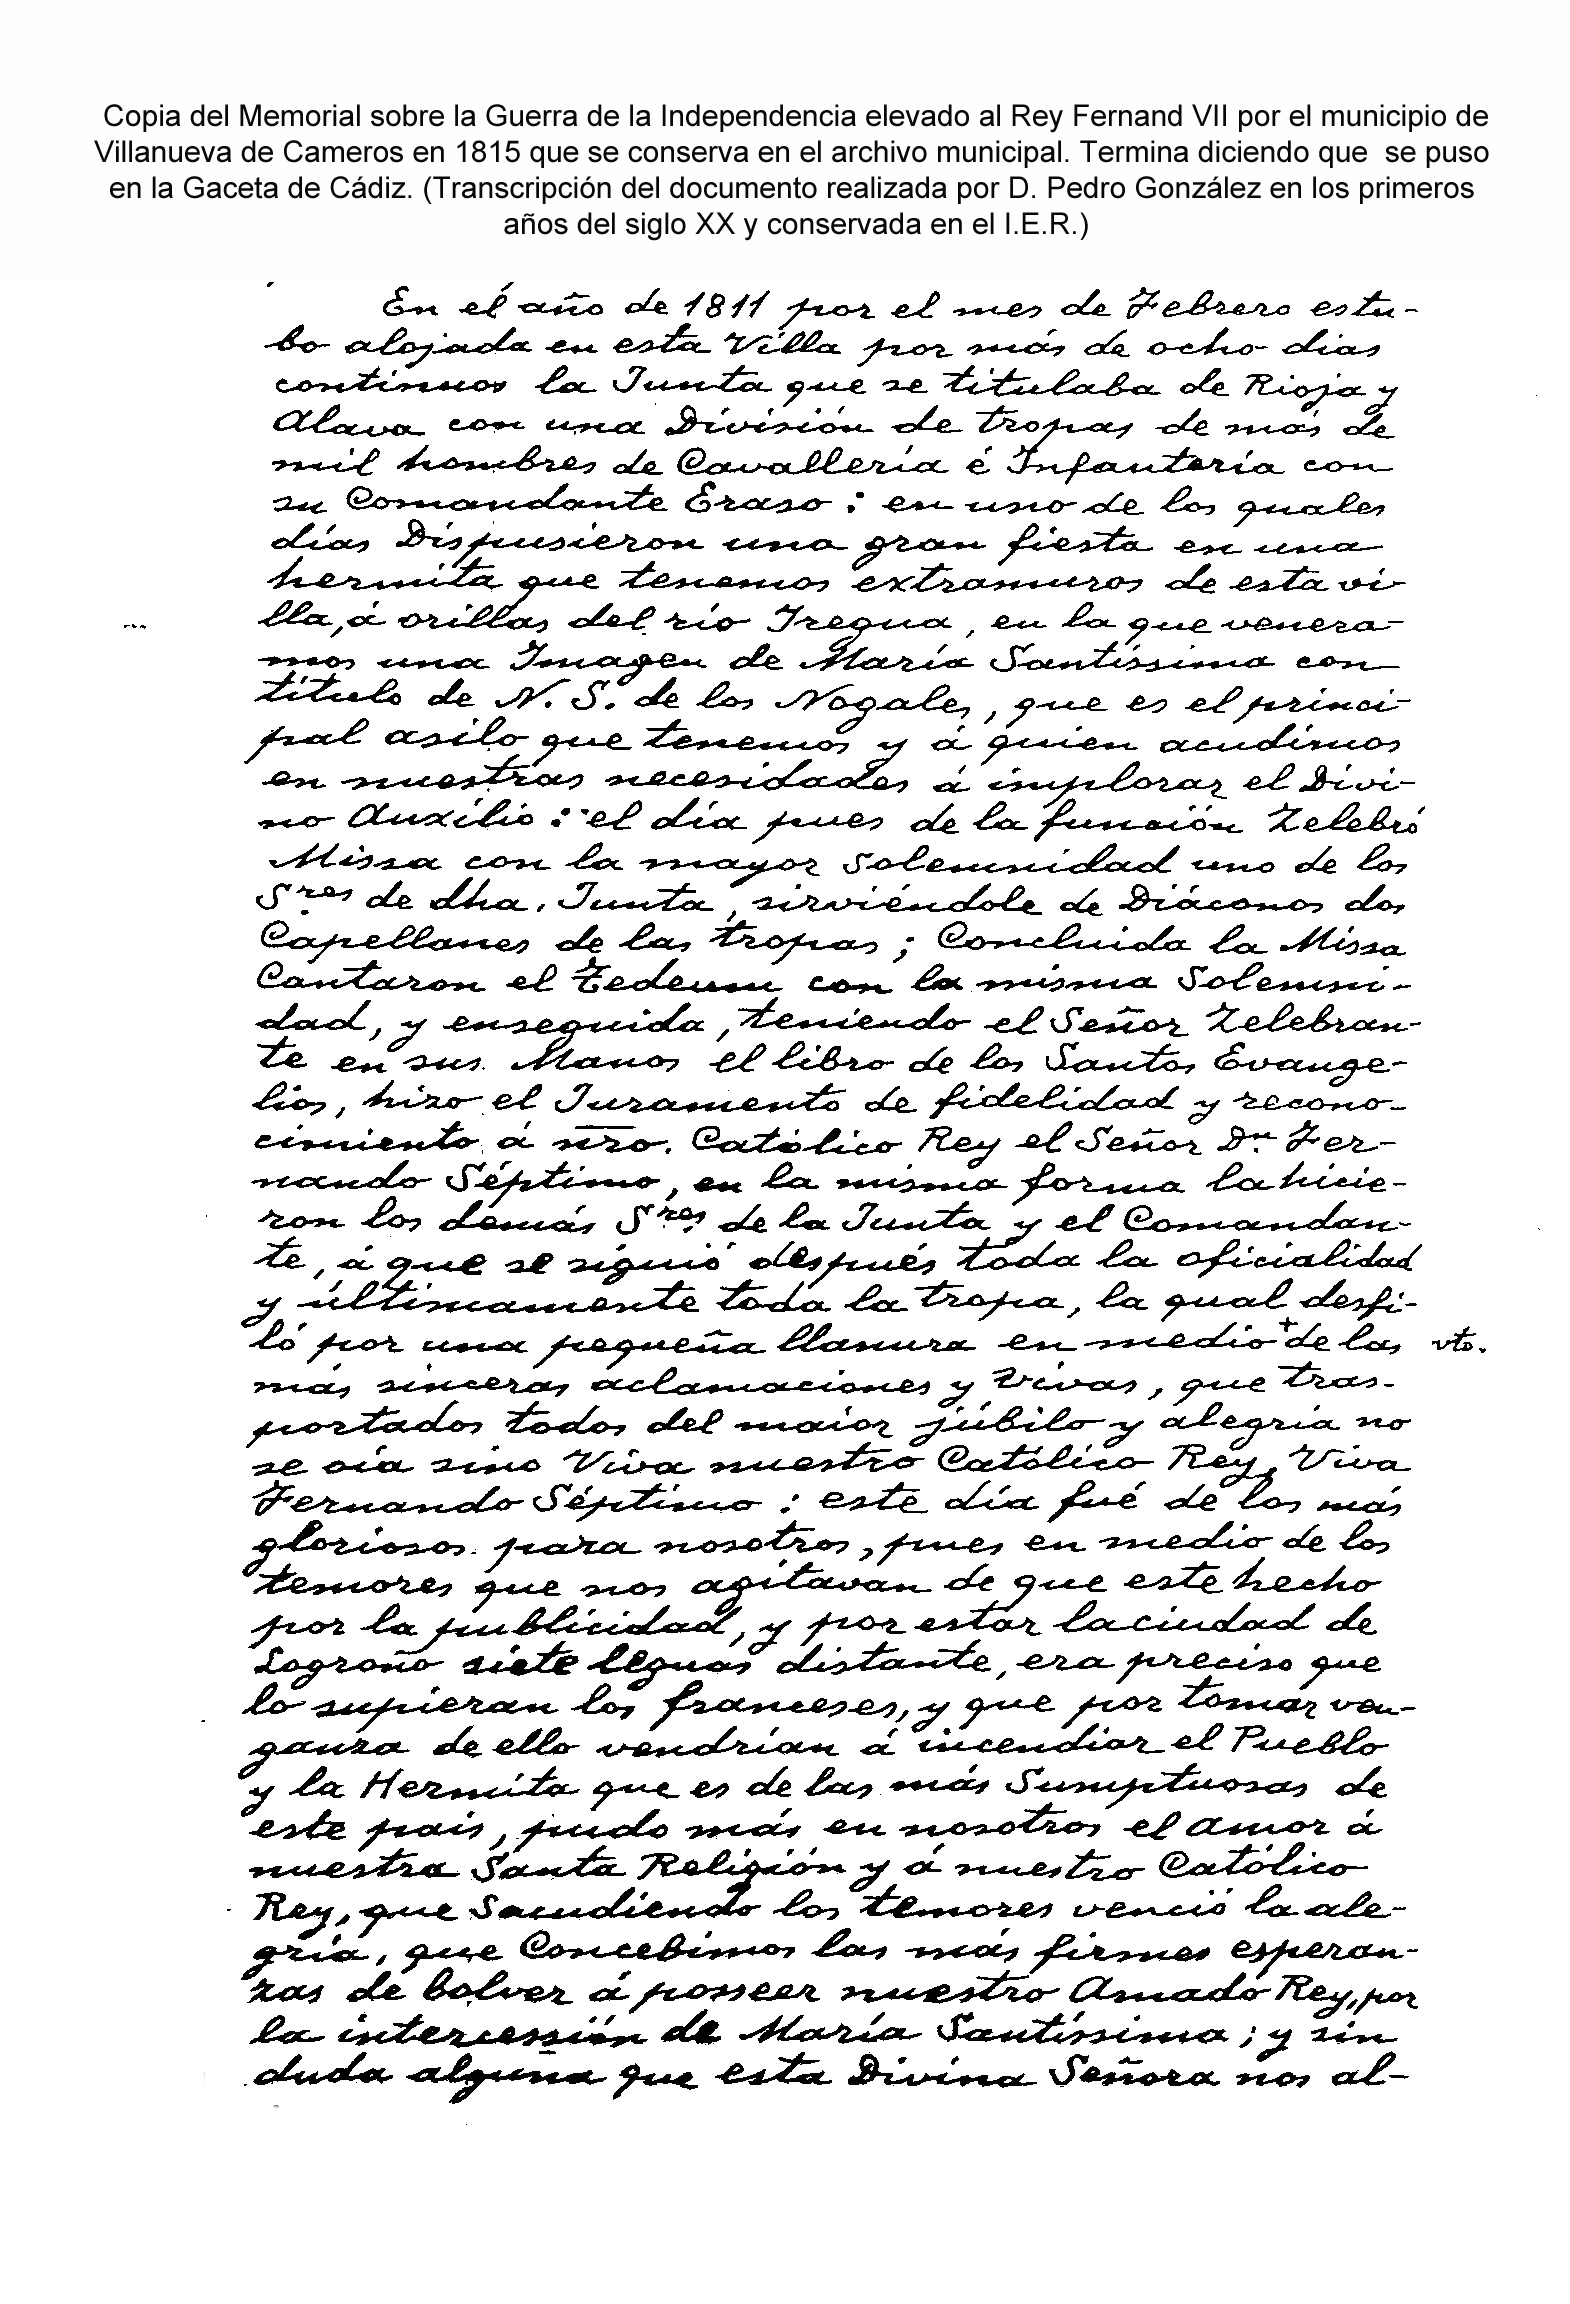 Copia del Memorial sobre la Guerra de la Independencia elevado al Rey Fernand VII por el municipio de
Villanueva de Cameros en 1815 que se conserva en el archivo municipal. Termina diciendo que se puso
en la Gaceta de Cádiz. (Transcripción del documento realizada por D. Pedro González en los primeros
años del siglo XX y conservada en el I.E.R.)
En él año de 1811 por el mes de Febrero estu-
bo alojada en esta Villa por más de ocho dias
continuos la Junta que se titulaba de Rioja y
Alava con una División de tropas de más de
mil hombres de Cavallería é Infantería con
su Comandante Eraso: en uno de los quales
días Dispusieron una gran fiesta en una
hermita que tenemos extramuros de esta vi-
lla, á orillas del río Iregua, en la que venera-
mos una Imagen de María Santíssima con
título de N. S. de los Nogales, que es el princi-
pal asilo que tenemos y á quien acudimos
en nuestras necesidades á implorar el Divi-
no Auxilio: el día pues de la función Zelebró
Missa con la mayor solemnidad uno de los
Sres de dha. Junta, sirviéndole de Diáconos dos
Capellanes de las tropas; Concluida la Missa
Cantaron el Tedeum con la misma Solemni-
dad, y enseguida, teniendo el Señor Zelebran-
te en sus Manos el libro de los Santos Evange-
lios, hizo el Juramento de fidelidad y recono-
cimiento á nro. Católico Rey el Señor Dn Fer-
nando Séptimo, en la misma forma la hicie-
ron los demás Sres de la Junta y el Comandan-
te, á que se siguió después toda la oficialidad
y últimamente toda la tropa, la qual desfi-
ló por una pequeña llanura en medio + de las vto.
más sinceras aclamaciones y Vivas, que tras-
portados todos del maior júbilo y alegría no
se oía sino Viva nuestro Católico Rey, Viva
Fernando Séptimo: este día fué de los más
gloriosos para nosotros, pues en medio de los
temores que nos agitavan de que este hecho
por la publicidad, y por estar la ciudad de
Logroño siete leguas distante, era preciso que
lo supieran los franceses, y que por tomar ven-
ganza de ello vendrían á incendiar el Pueblo
y la Hermita que es de las más Sumptuosas de
este país, pudo más en nosotros el amor á
nuestra Santa Religión y á nuestro Católico
Rey, que Sacudiendo los temores venció la ale-
gría, que Concebimos las más firmes esperan-
zas de bolver á posseer nuestro Amado Rey, por
la intercessión de María Santíssima; y sin
duda alguna que esta Divina Señora nos al-